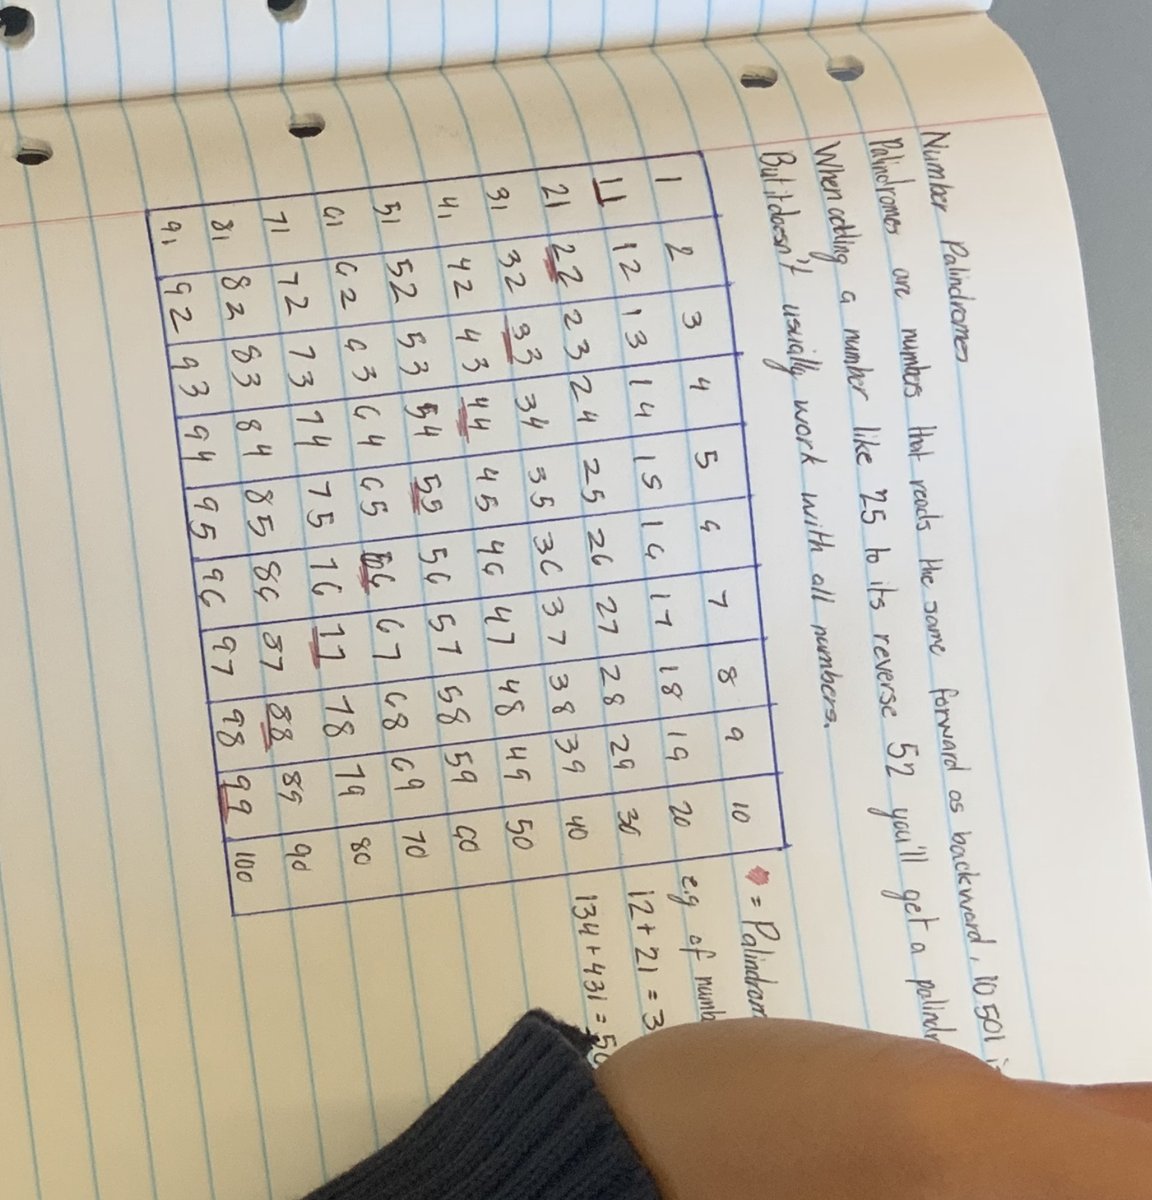 Number Palindromes
Palindromes are numbers that reads the same forward as backward, 10 501
When adding a number like 25 to its reverse 52 you'll get a
But it doesn't usually work with all numbers.
1 2 3 4 5 6 7 8 9 10
11 12 13 14 15 16 17 18 19 20
21 22 23 24 25 26 27 28 29 30
31 32 33 34 35 36 37 38 39 40
41 42 43 44 45 46 47 48 49 50
51 52 53 54 55 56 57 58 59 60
61 62 63 64 65 66 67 68 69 70
71 72 73 74 75 76 77 78 79 80
81 82 83 84 85 86 87 88 89 90
91 92 93 94 95 96 97 98 99 100
=
e.g of
12 + 21 =
134 + 431 =